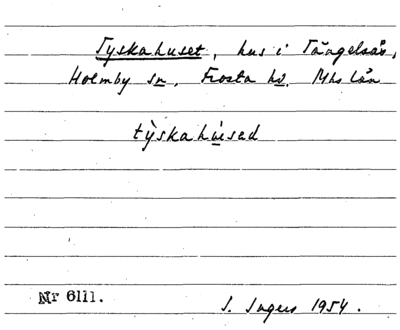 Tyskahuset, hus i Tängelsås,
Holmby sn, Frosta hd. Mhs län
tỳskahúsed
Nr 6111.
I. Ingers 1954.